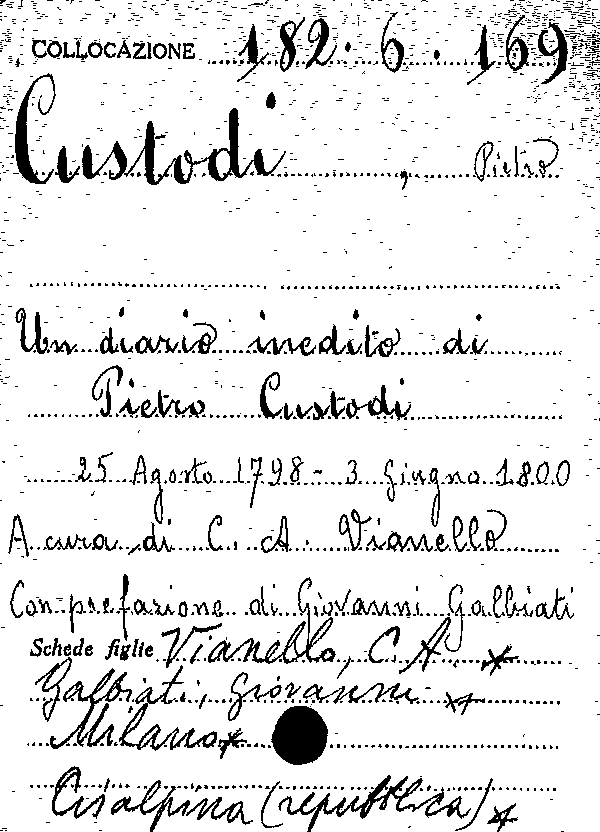 COLLOCAZIONE 182.6.169
Custodi, Pietro
Un diario inedito di
Pietro Custodi
25 Agosto 1798 - 3 Giugno 1800
A cura di C. A. Vianello
Con prefazione di Giovanni Galbiati
Schede figlie Vianello, C. A. *
Galbiati, Giovanni *
Milano *
Cisalpina (repubblica) *